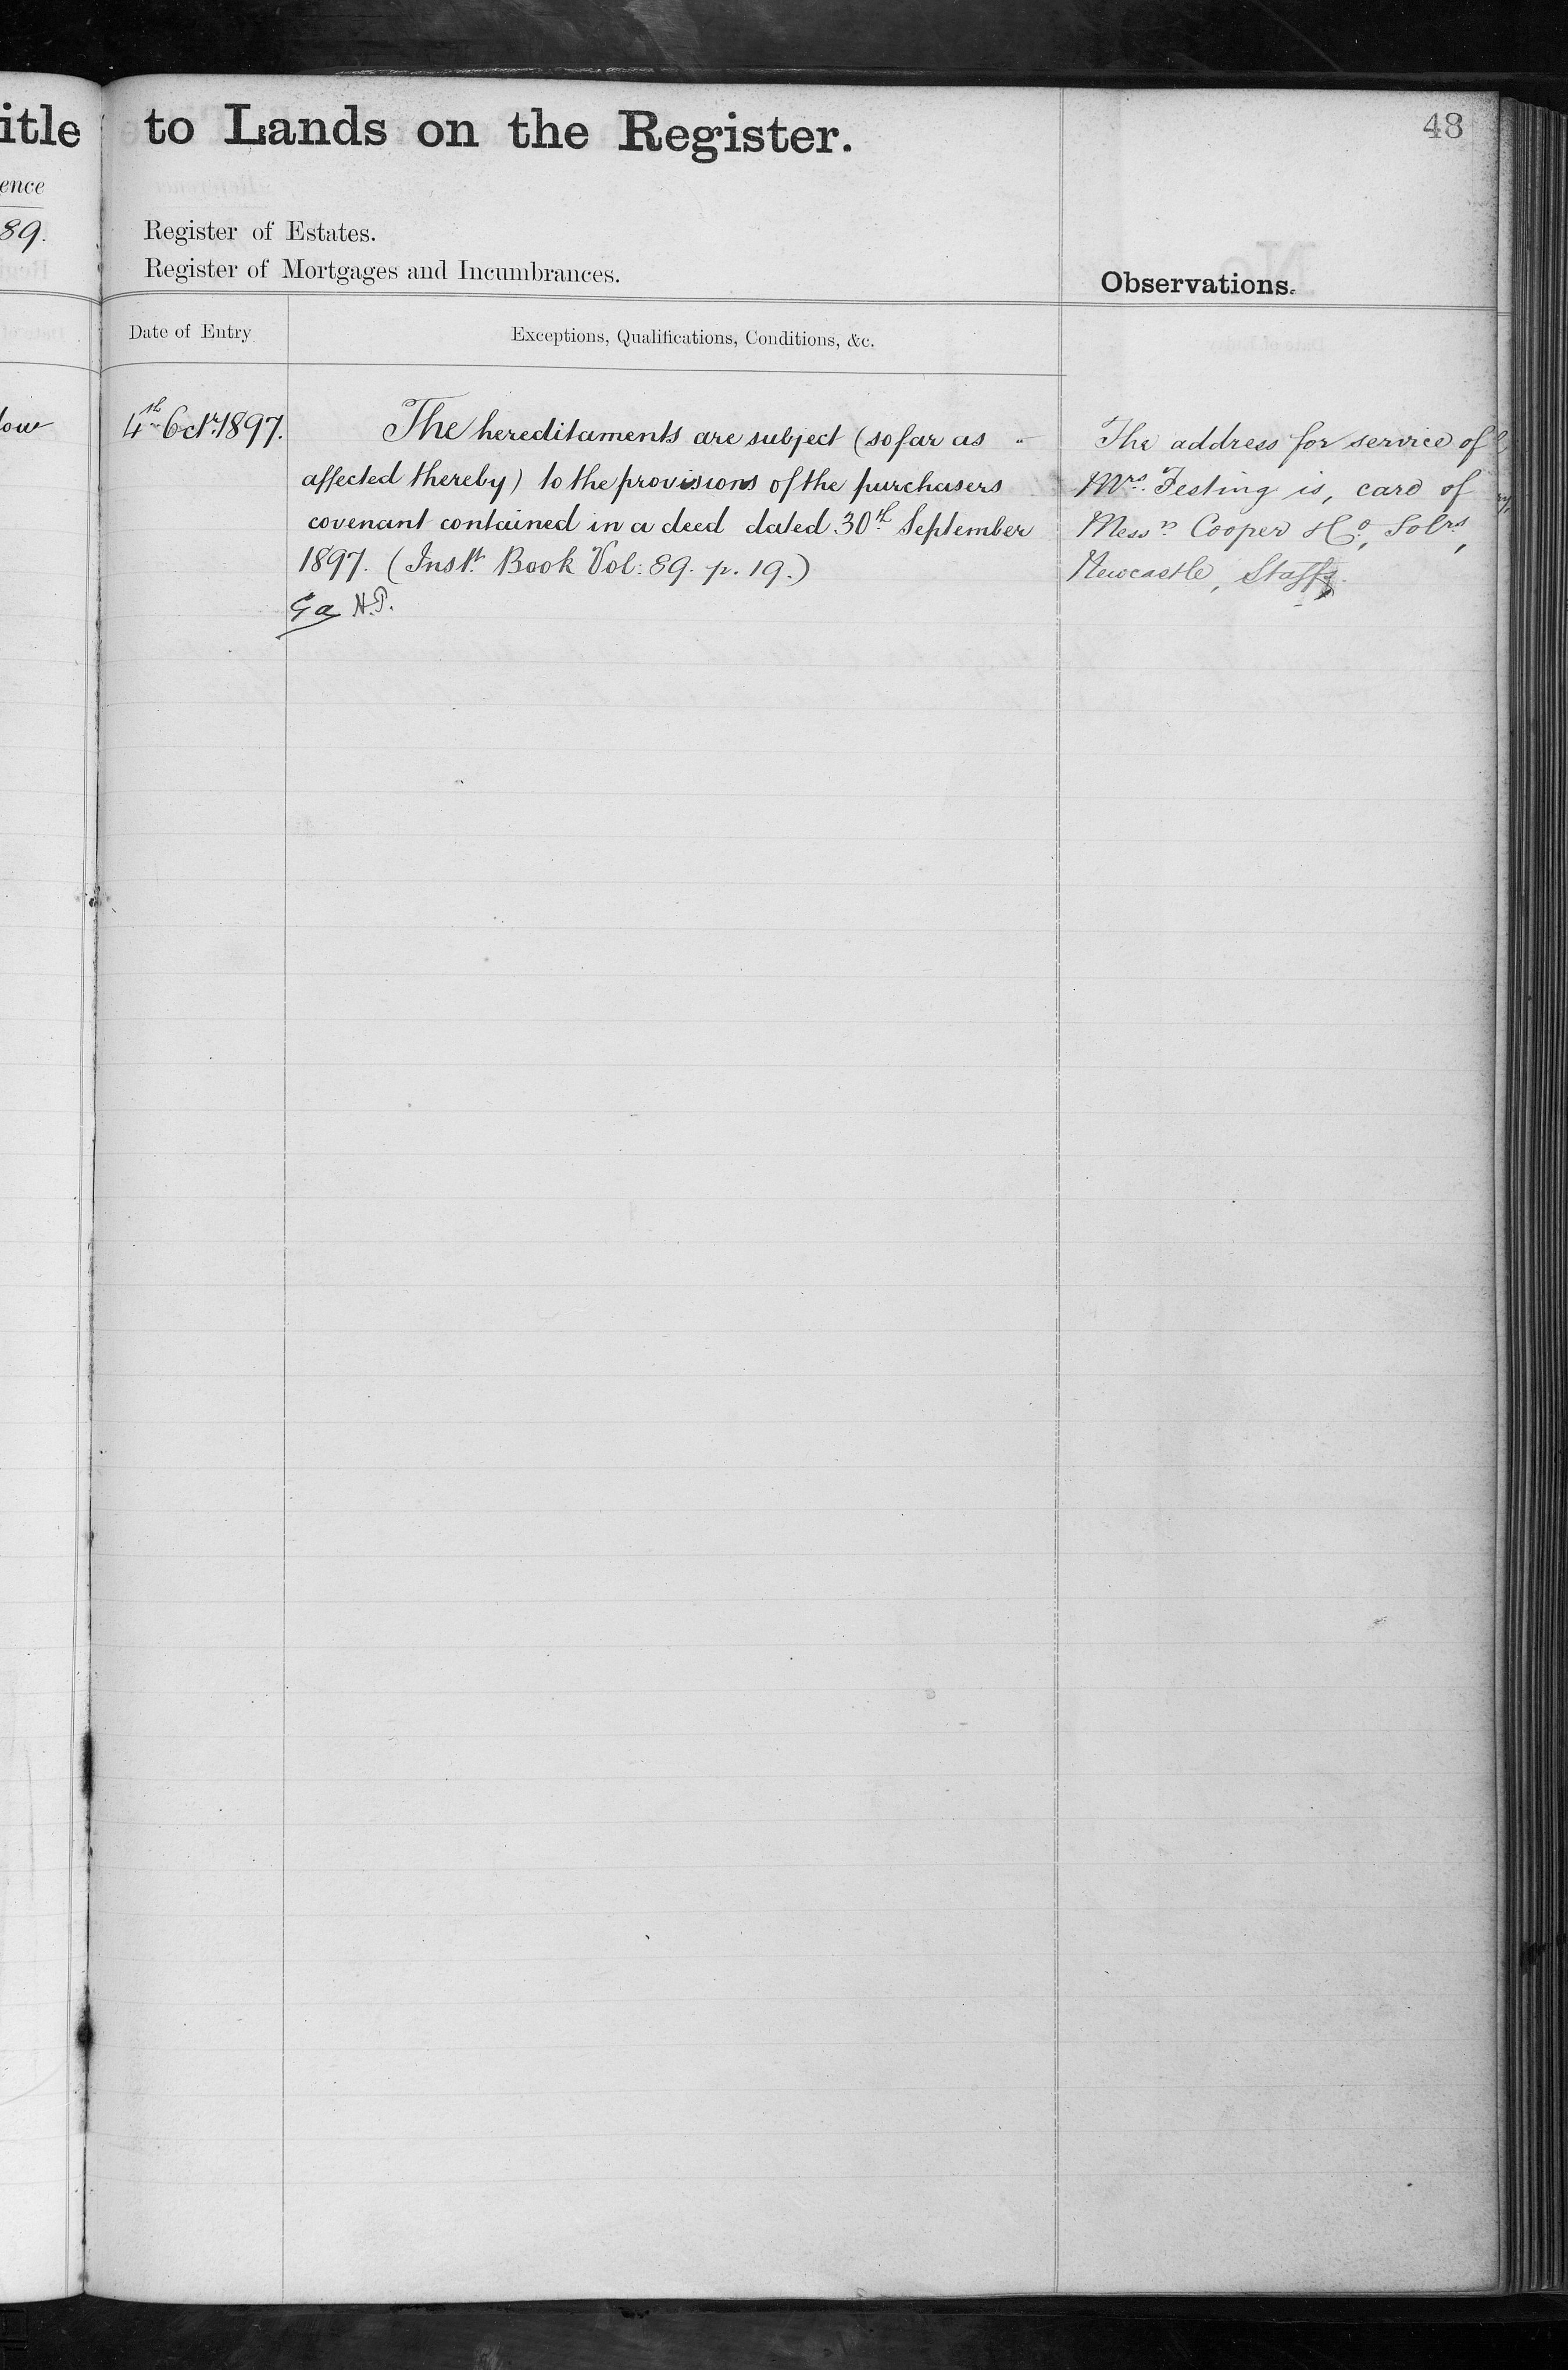 itle to Lands on the Register.
48
ence
89.
Register of Estates.
Register of Mortgages and Incumbrances.
Observations.
Date of Entry
Exceptions, Qualifications, Conditions, &c.
low
4th Octr. 1897.
The hereditaments are subject (so far as
affected thereby) to the provisions of the purchasers
covenant contained in a deed dated 30th September
1897. (Instt. Book Vol: 89. p. 19.)
H.P.
The address for service of
Mrs. Festing is, care of
Messrs Cooper & Co, Solrs,
Newcastle, Staffs.